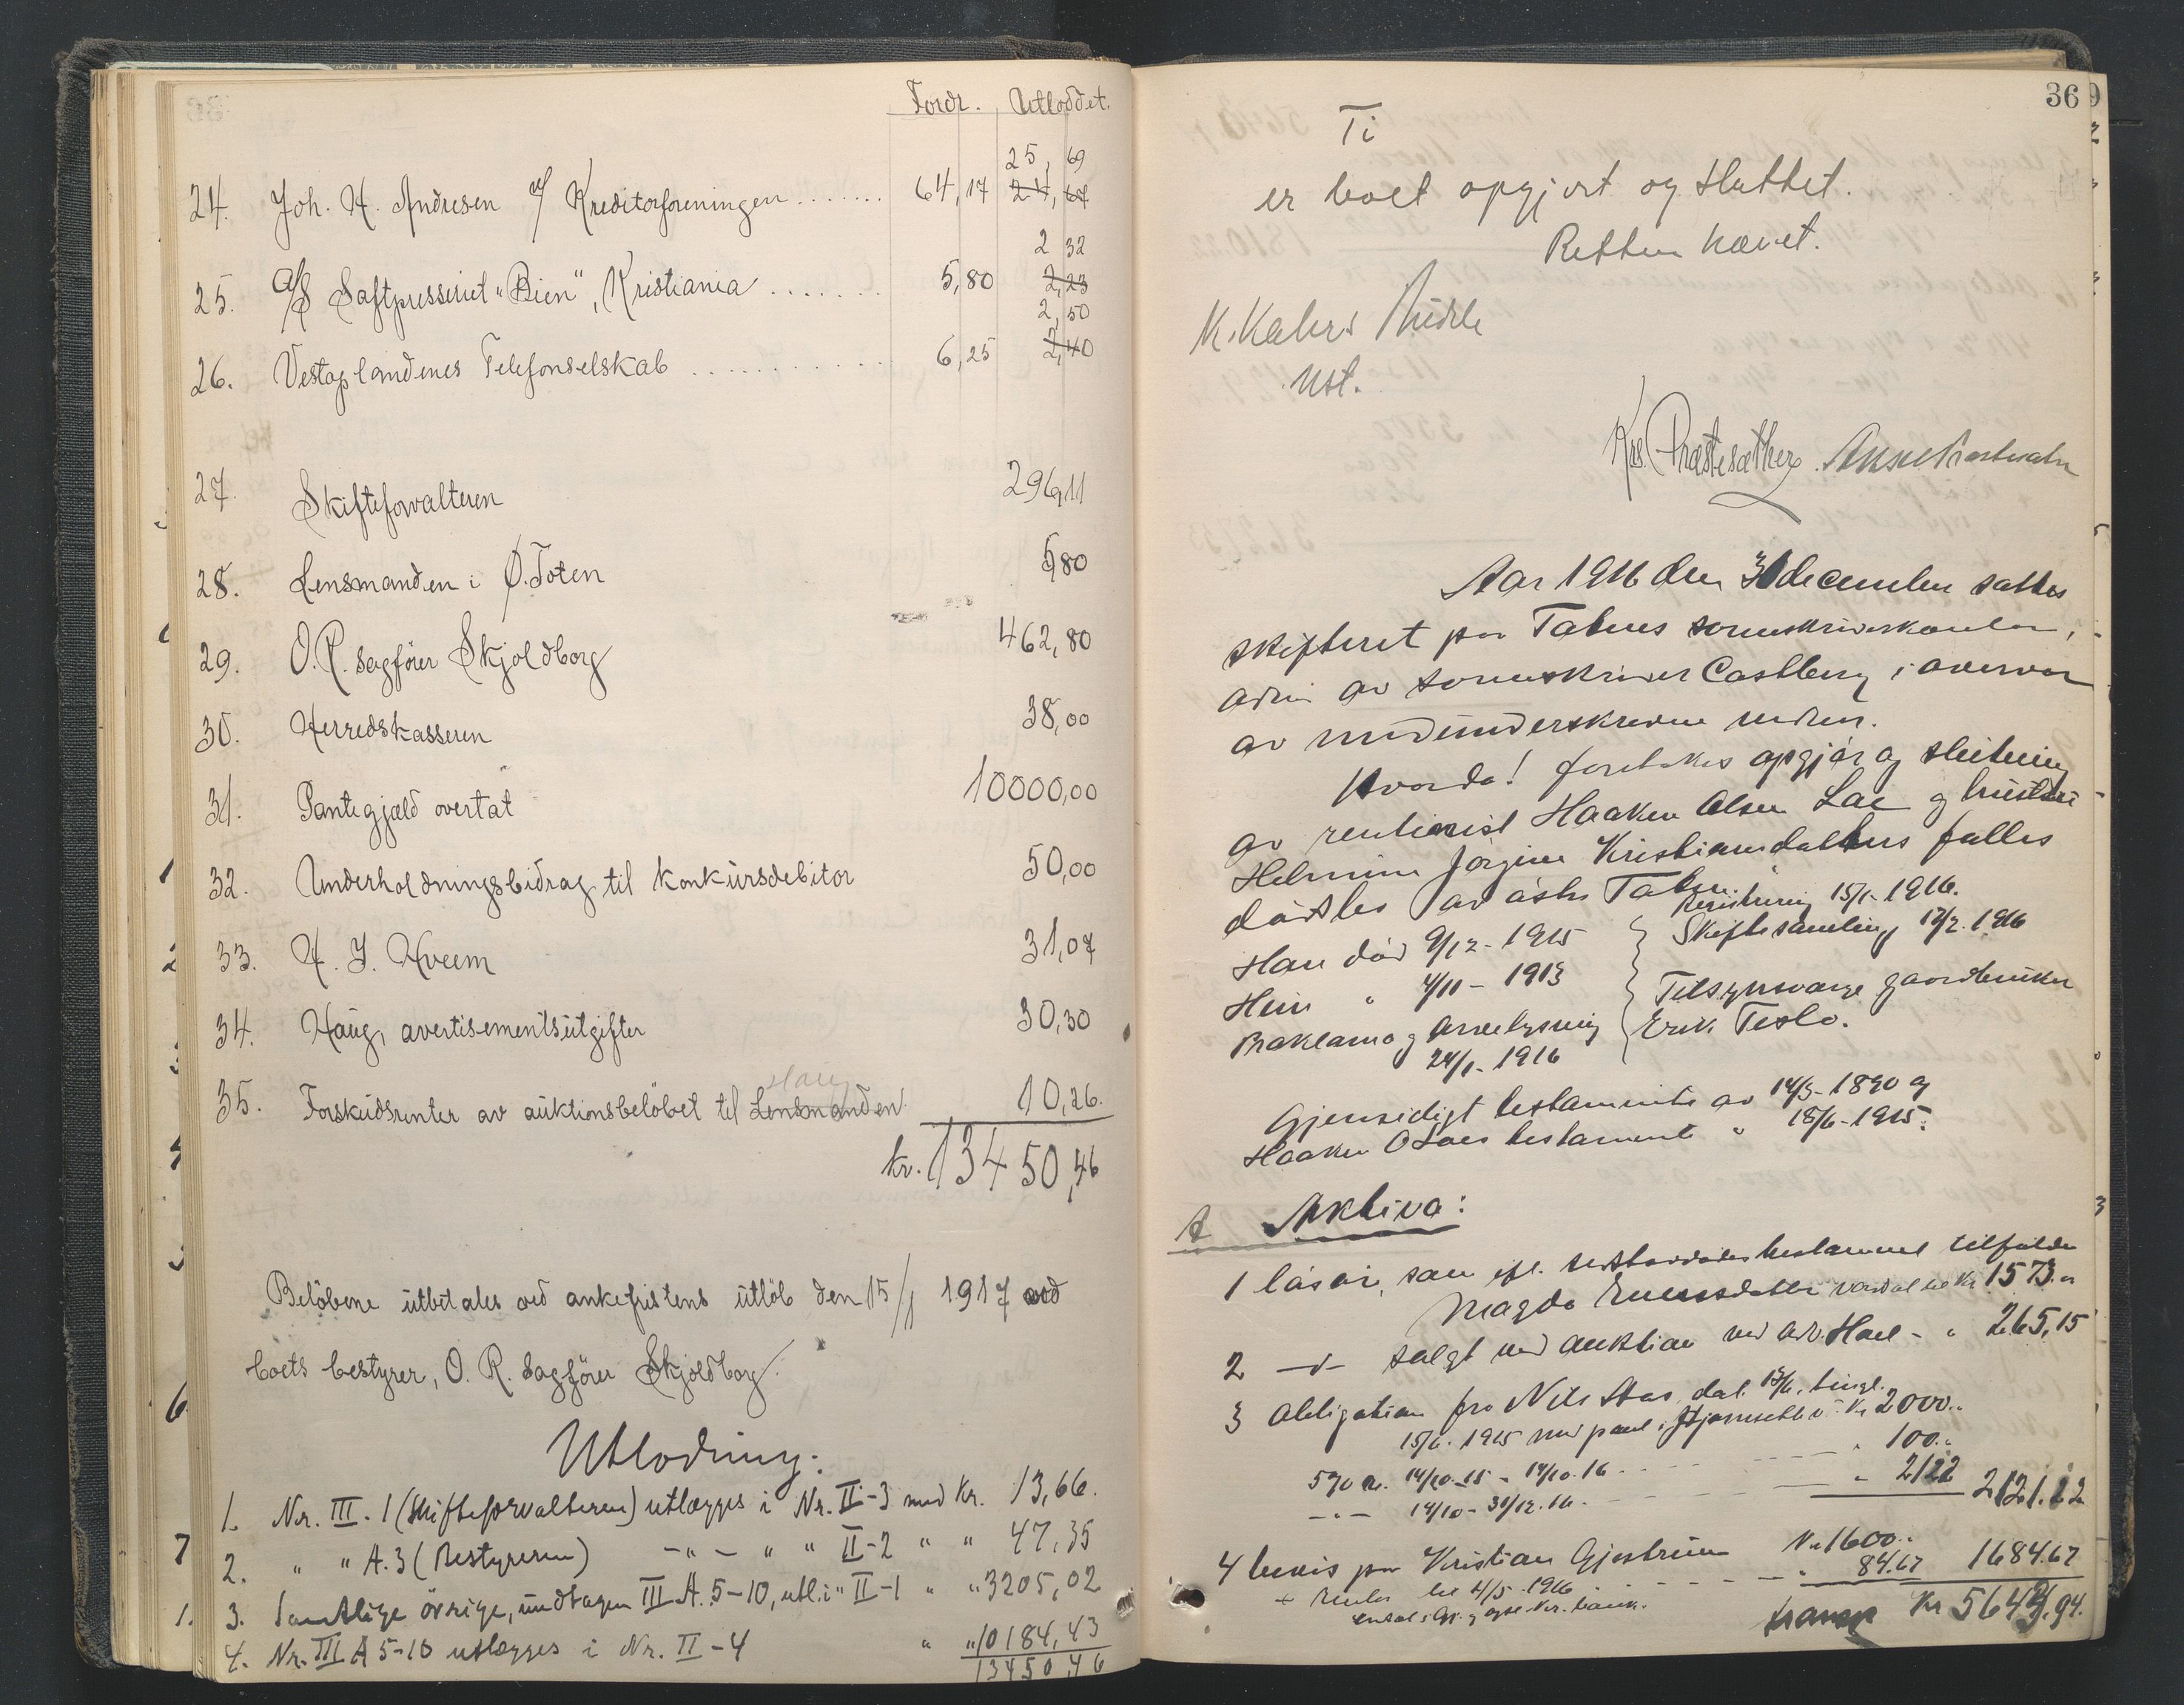 Fordr. Utloddet.
25,69
24. Joh. H. Andresen v/ Kreditorforeningen ....... 64,17 24,67
2 32
25. A/S Saftpresseriet "Bien", Kristiania ....... 5,80 2,23
2,50
26. Vestoplandenes Telefonselskab ........... 6,25 2,40
27. Skifteforvalteren 296,11
28. Lensmanden i Ø. Toten 5,80
29. O.R. sagfører Skjoldborg 462,80
30. Herredskasseren 38,00
31. Pantegjæld overtat 10000,00
32. Underholdningsbidrag til konkursdebitor 50,00
33. H. J. Hveem 31,07
34. Haug, avertisementsutgifter 30,30
Haug
35. Forskudsrenter av auktionsbeløbet til Lensmanden 10,26.
kr. 13450,46
Beløbene utbetales ved ankefristens utløb den 15/1 1917 ved
boets bestyrer, O. R. sagfører Skjoldborg.
Utlodning:
1. Nr. III. 1 (Skifteforvalteren) utlægges i Nr. II-3 med kr. 13,66.
2. " " A.3 (Bestyreren) -"- " " II-2 " " 47,35
3. Samtlige øvrige, undtagen III A. 5-10, utl. i " II-1 " " 3205,02
4. Nr. III A 5-10 utlægges i Nr. II-4 " " 10184,43
13450,46
369
Ti
er boet opgjort og sluttet.
Retten hævet.
K. Kahrs
Kst.
Krs. Præstesæther
Aar 1916 den 31 december sattes
skifteret paa Totens sorenskriverkontor,
adm av sorenskriver Castberg i overvær
av medunderskrevne vidner.
Hvorda! foretokes opgjør og slutning
av rentenist Haaken Olsen Lae og hustru
Helmine Jørgine Kristiansdatters fælles
dødsbo av østre Toten.
Registrering 15/1-1916.
Han død 9/12-1915 Skiftesamling 12/2.1916
Hun " 4/11-1913 Tilsynsværge gaardbruker
Proklama og Arvelysning Erik Teslo.
24/1-1916
Gjensidigt testamente av 14/3-1890 og
Haaken O Laes testamente " 18/6-1915.
A Aktiva:
1 løsøre, som efl. testamente tilfaldt
Magda værdsat til Kr 1573.-
2 -"- solgt ved auktion - " 265,15
3 Obligation fra Nils dat. 13/6, tingl.
15/6.1915 med pant i Kr 2000..
5% r. 14/10-15 - 14/10.16 " 100..
-"- 14/10-31/12.16. " 21.22 2121.22
4 bevis paa Kristian Gjestrum Kr 1600..
+ renter til 4/5-1916 " 84.67 1684.67
transp Kr 5643.94.